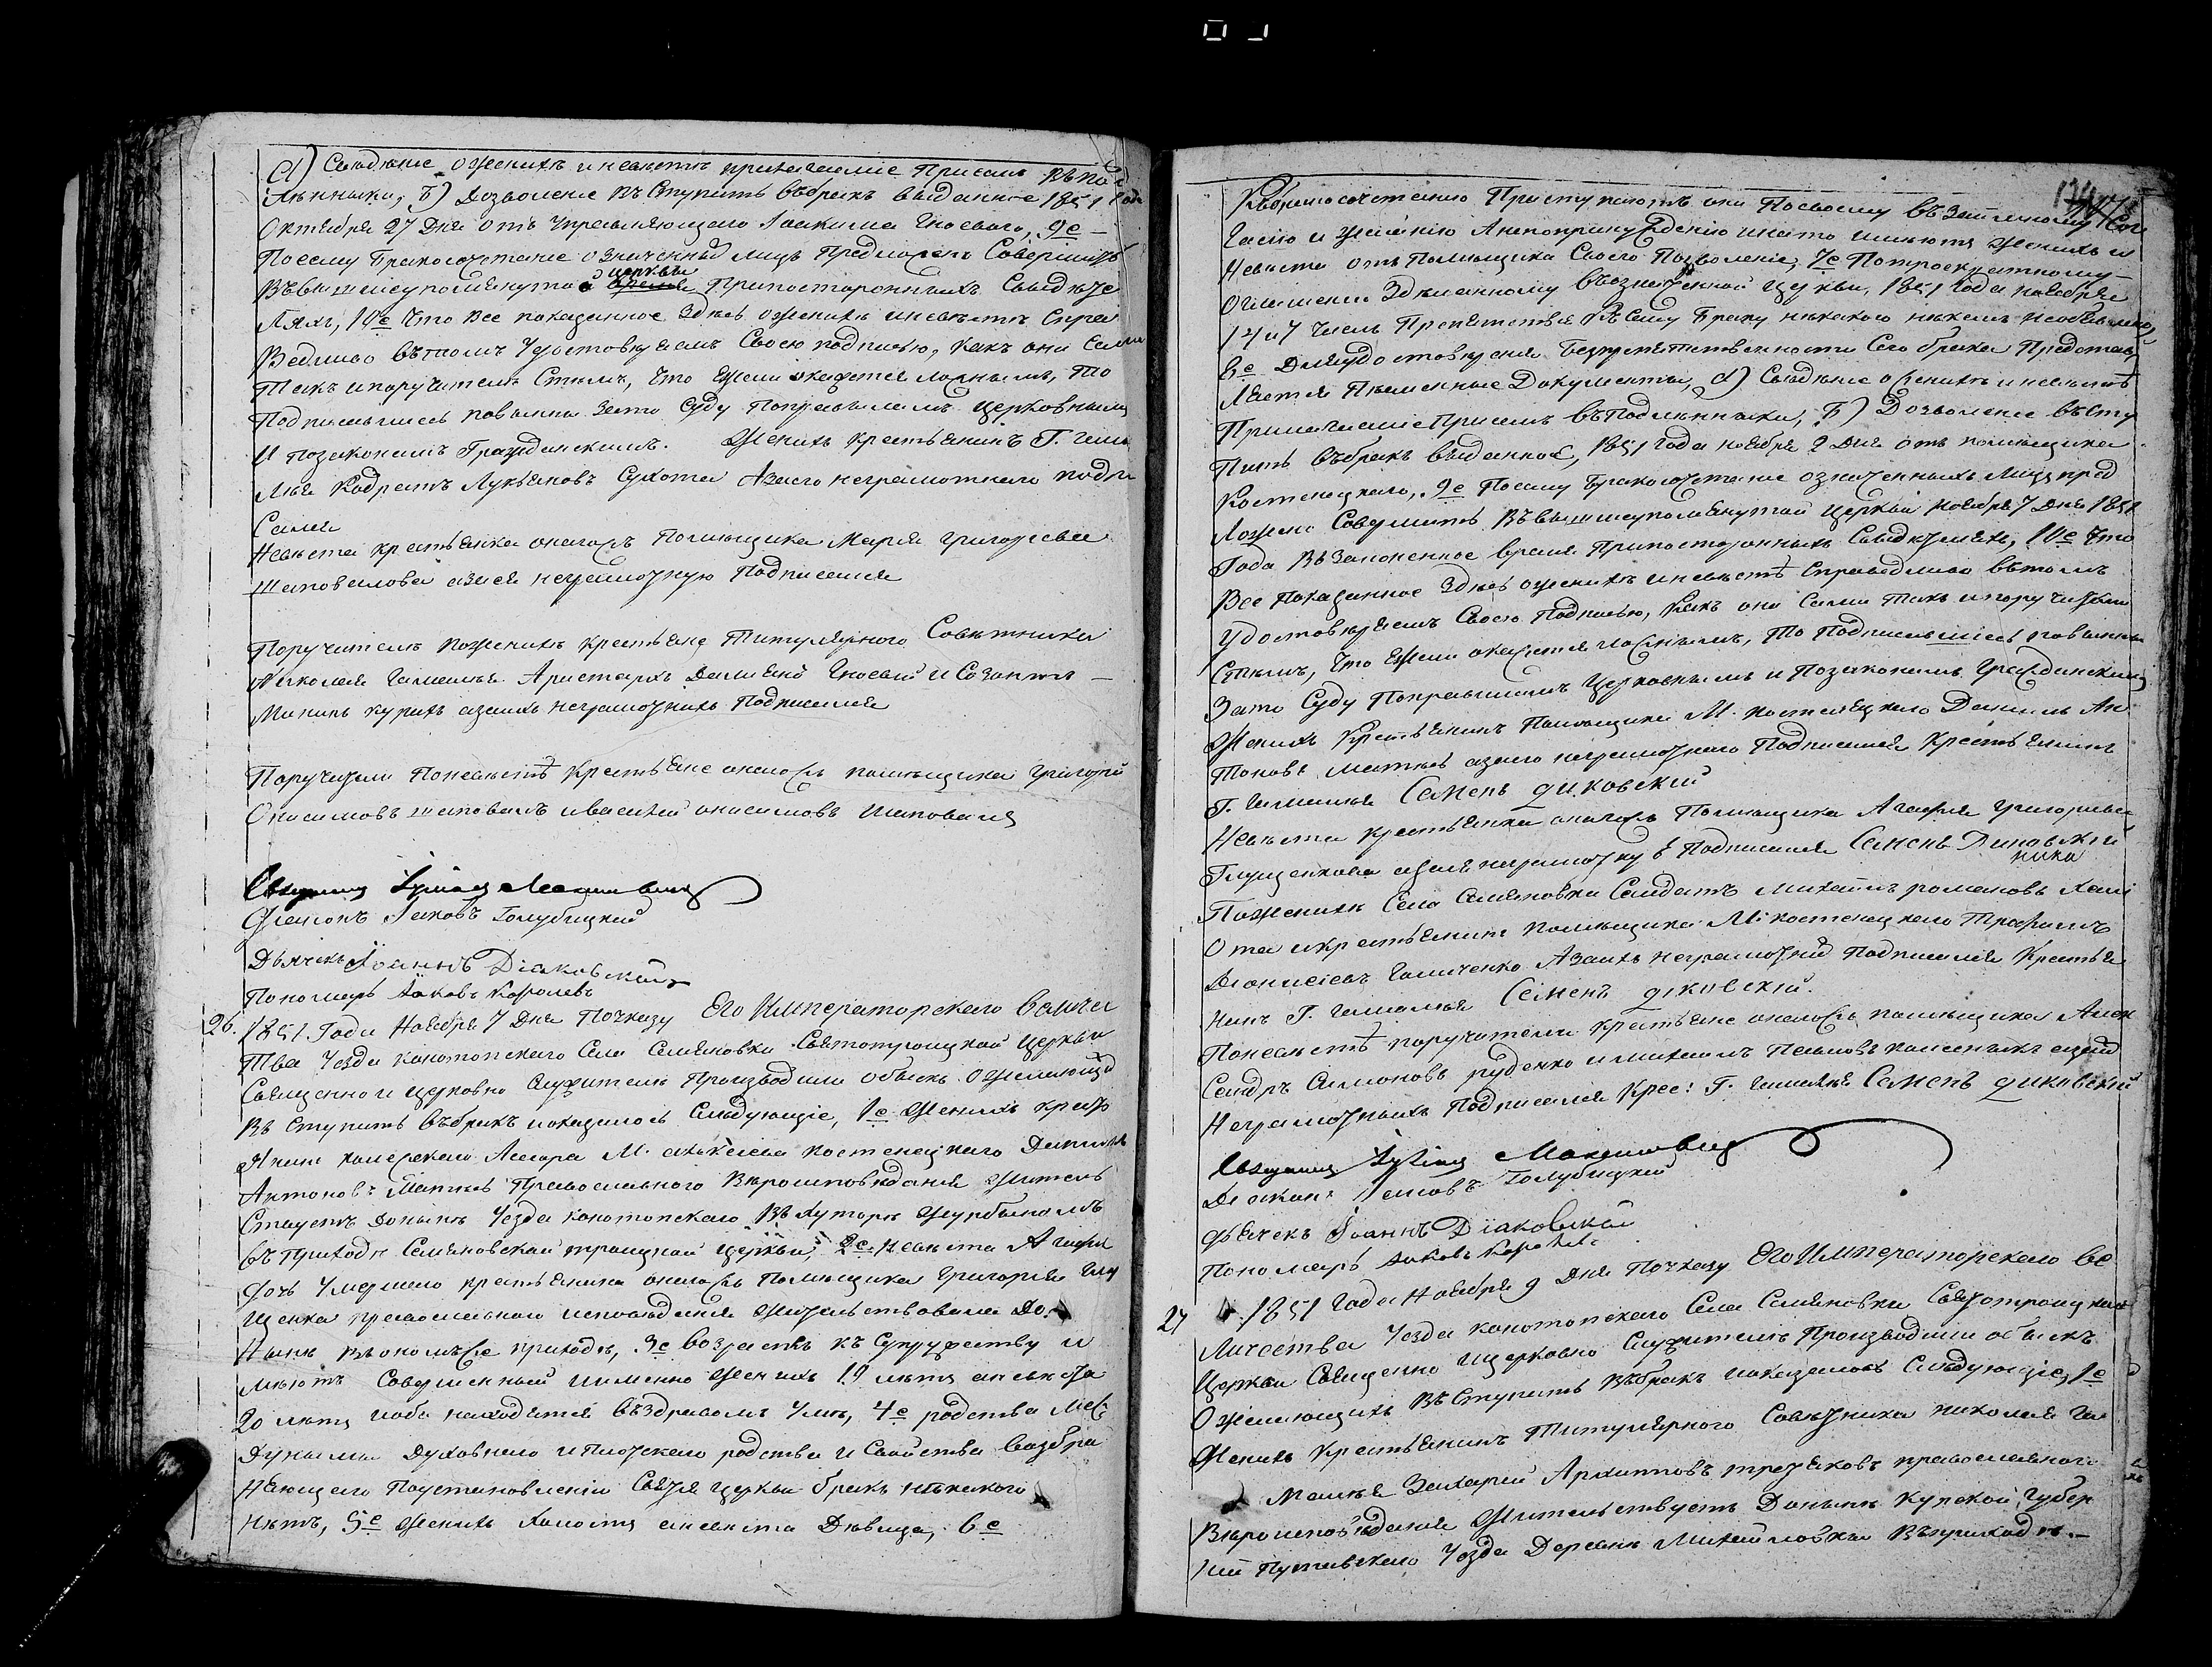 а) Свѣденіе о женихѣ и невѣстѣ прилагаеміе При семъ въ под
линники, б) Дозволеніе въ Ступить въ бракъ выданное 1851 года
Октября 27 Дня отъ Управляющаго Іоакима Гноеваго, 9е
Посему бракосочетаніе означенныхъ лицъ Предложено Совершить
Въ вышеупомянутой церкви При постороннихъ Свидѣте
ляхъ, 10е Что Все показанное здѣсь о женихѣ и невѣстѣ Спра
Ведливо въ томъ Удостовѣряемъ Своею подписью, какъ они Сами
такъ и поручители Стѣмъ, что Ежели окажется ложнымъ, то
Подписавшиеся повинны за то Суду По правиламъ церковнымъ
И по законамъ Гражданскимъ. Женихъ крестьянинъ Г. Гама
лѣя Кодратъ Лукьяновъ Сухота А за его неграмотнаго подпи
Сался
Невѣста крестьянка онагожъ Помѣщика Марія Григорьева
Шаповалова а за нея неграмотную Подписался
Поручители по женихѣ крестьяне Титулярного Совѣтника
Николая Гамалѣя Аристархъ Даміановъ Гноевый и Созонтъ
а за ихъ неграмотнихъ Подписался
Поручители По невѣстѣ Крестьяне онагожъ помѣщика Григорій
Онисимовъ Шаповалъ и Василий Онисимовъ Шаповалъ
Священникъ
Діаконъ Іаковъ Голубицкий
Дьячекъ Іоаннъ Діаковский
Пономарь Іаковъ Королевъ
26. 1851 Года Ноября 7 Дня По указу Его Императорскаго Величес
тва Уезда конотопскаго Села Семяновки Святотроицкой Церкви
Священно и церковно Служители Производили обыскъ о желающихъ
въ Ступить въ бракъ и оказалось Слѣдующіе, 1е Женихъ крестъ
янинъ М. Алексѣева костенецкаго Даніилъ
Антоновъ Православнаго Вѣроисповѣданія Житель
Ствуетъ Донынѣ Уезда конотопскаго Въ Хуторѣ
въ Приходѣ Семяновской троицкой Церкви, 2е Невѣста Агафія
дочь Умершаго крестьянина онагожъ Помѣщика Григорія Глу
щенка православнаго исповѣданія Жительствовала До
Нынѣ въ ономъже приходѣ, 3е возрастъ къ Супружеству и
мѣютъ Совершенный именно Женихъ 19 лѣтъ а невѣста
20 лѣтъ и оба находятся въ здравомъ Умѣ, 4е родства меж
Ду ними Духовнаго и Плотскаго родства и Свойства Возбра
няющаго По установленію Святыя церкви бракъ никакого
Нѣтъ, 5е Женихъ Холостъ а невѣста Дѣвица, 6е
К бракосочетанію Приступаютъ они По своему взаимному Согл
гласію и желанію А не по принужденію и на то имѣютъ Женихъ и
Невѣста отъ Помѣщика Своего Позволеніе, 7е По троекратному
Оглашенію Здѣланному въ означенной Церкви, 1851 Года Ноября
1 4 и 7 Числъ Препятствія Къ Сему Браку никакого никемъ не объявлено,
8е Для удостовѣренія безпрепятственности Сего брака Представ
ляется Писменные Документы, а) Свѣденіе о женихѣ и невѣстѣ
Прилагаеміе При семъ въ Подлинники, б) Дозволеніе въ Сту
Пить въ бракъ выданное, 1851 Года Ноября 2 Дня отъ помѣщика
Костенецкаго, 9е Посему бракосочетаніе означенныхъ Лицъ пред
ложено Совершить Въ вышеупомянутой церкви Ноября 7 Дня 1851
Года Въ законенное время При постороннихъ Свидѣтеляхъ, 10е Что
Все Показанное здѣсь о женихѣ и невѣстѣ Справедливо въ томъ
Удостовѣряемъ Своею Подписью, Какъ они Сами такъ и поручители
Стѣмъ, что Ежели окажется ложнымъ, То Подписавшиеся повинны
За то Суду По правиламъ Церковнымъ и По законамъ Гражданскимъ
Женихъ Крестьянинъ Помѣщика М. костенецкаго Даніилъ Ан
тоновъ а за его неграмотнаго Подписался Крестьянинъ
Г. Гамалѣя Семенъ диковский
Невѣста крестьянка онагожъ Помѣщика Агафія Григорьева
Глущенкова а за нея неграмотную Подписался Семенъ Диковский
По женихѣ Села Семяновки Солдатъ Михаилъ романовъ
и крестьянинъ помѣщика М: костенецкаго Трофимъ
Діонисіевъ Галиченко А за ихъ неграмотній Подписался Крестья
нинъ Г. Гамалѣя Семенъ диковский.
По невѣстѣ поручители крестьяне онагожъ помѣщика Алек
Сандръ Симоновъ руденко и Михаилъ
Неграмотныхъ Подписался Крес: Г. Гамалѣя Семенъ диковский
Священникъ
Діаконъ Іаковъ Голубицкий
Дьячекъ Іоаннъ Діаковский
Пономарь Іаковъ Королевъ
27 1851 Года Ноября 9 Дня По указу Его Императорскаго Ве
личества Уезда конотопскаго Села Семяновки Святотроицкой
Церкви Священно и церковно Служители Производили обыскъ
О желающихъ въ Ступить въ бракъ и оказалось Слѣдующіе, 1е
Женихъ Крестьянинъ Титулярного Совѣтника Николая Га
малѣя Захарий Архиповъ третяковъ православнаго
Вѣроисповѣданія Жительствуетъ Донынѣ Курской Губер
ніи Путивскаго Уезда Деревнѣ Михайловки Въ приходѣ